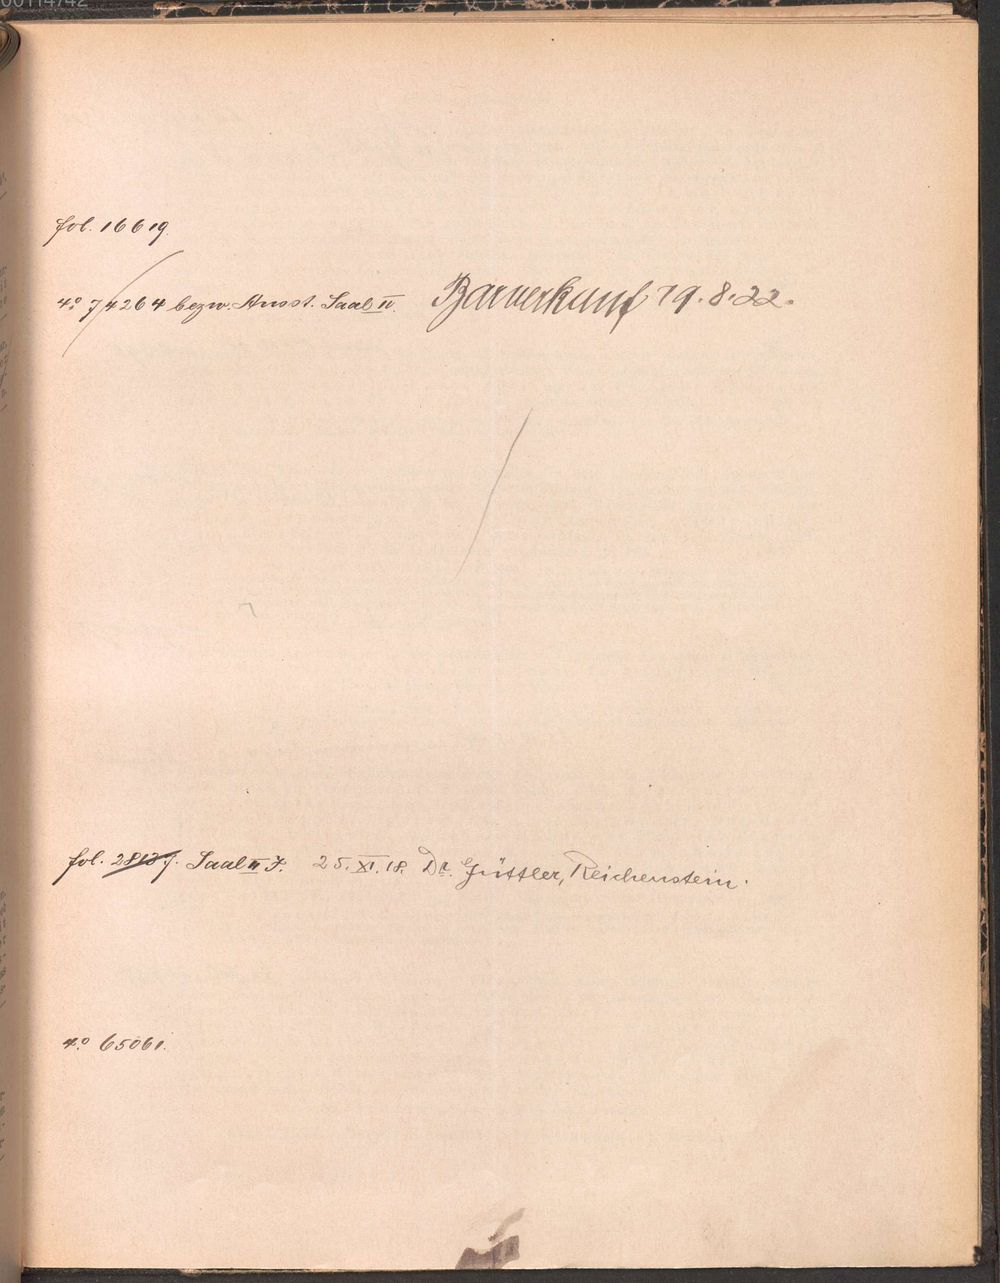 fol. 16619.
4° 74264 bezw. Ausst. Saal II. Barverkauf 19.8.22.
fol. 28137. Saal II J. 25.XI.18. Dr. Güttler, Reichenstein.
4° 65061.